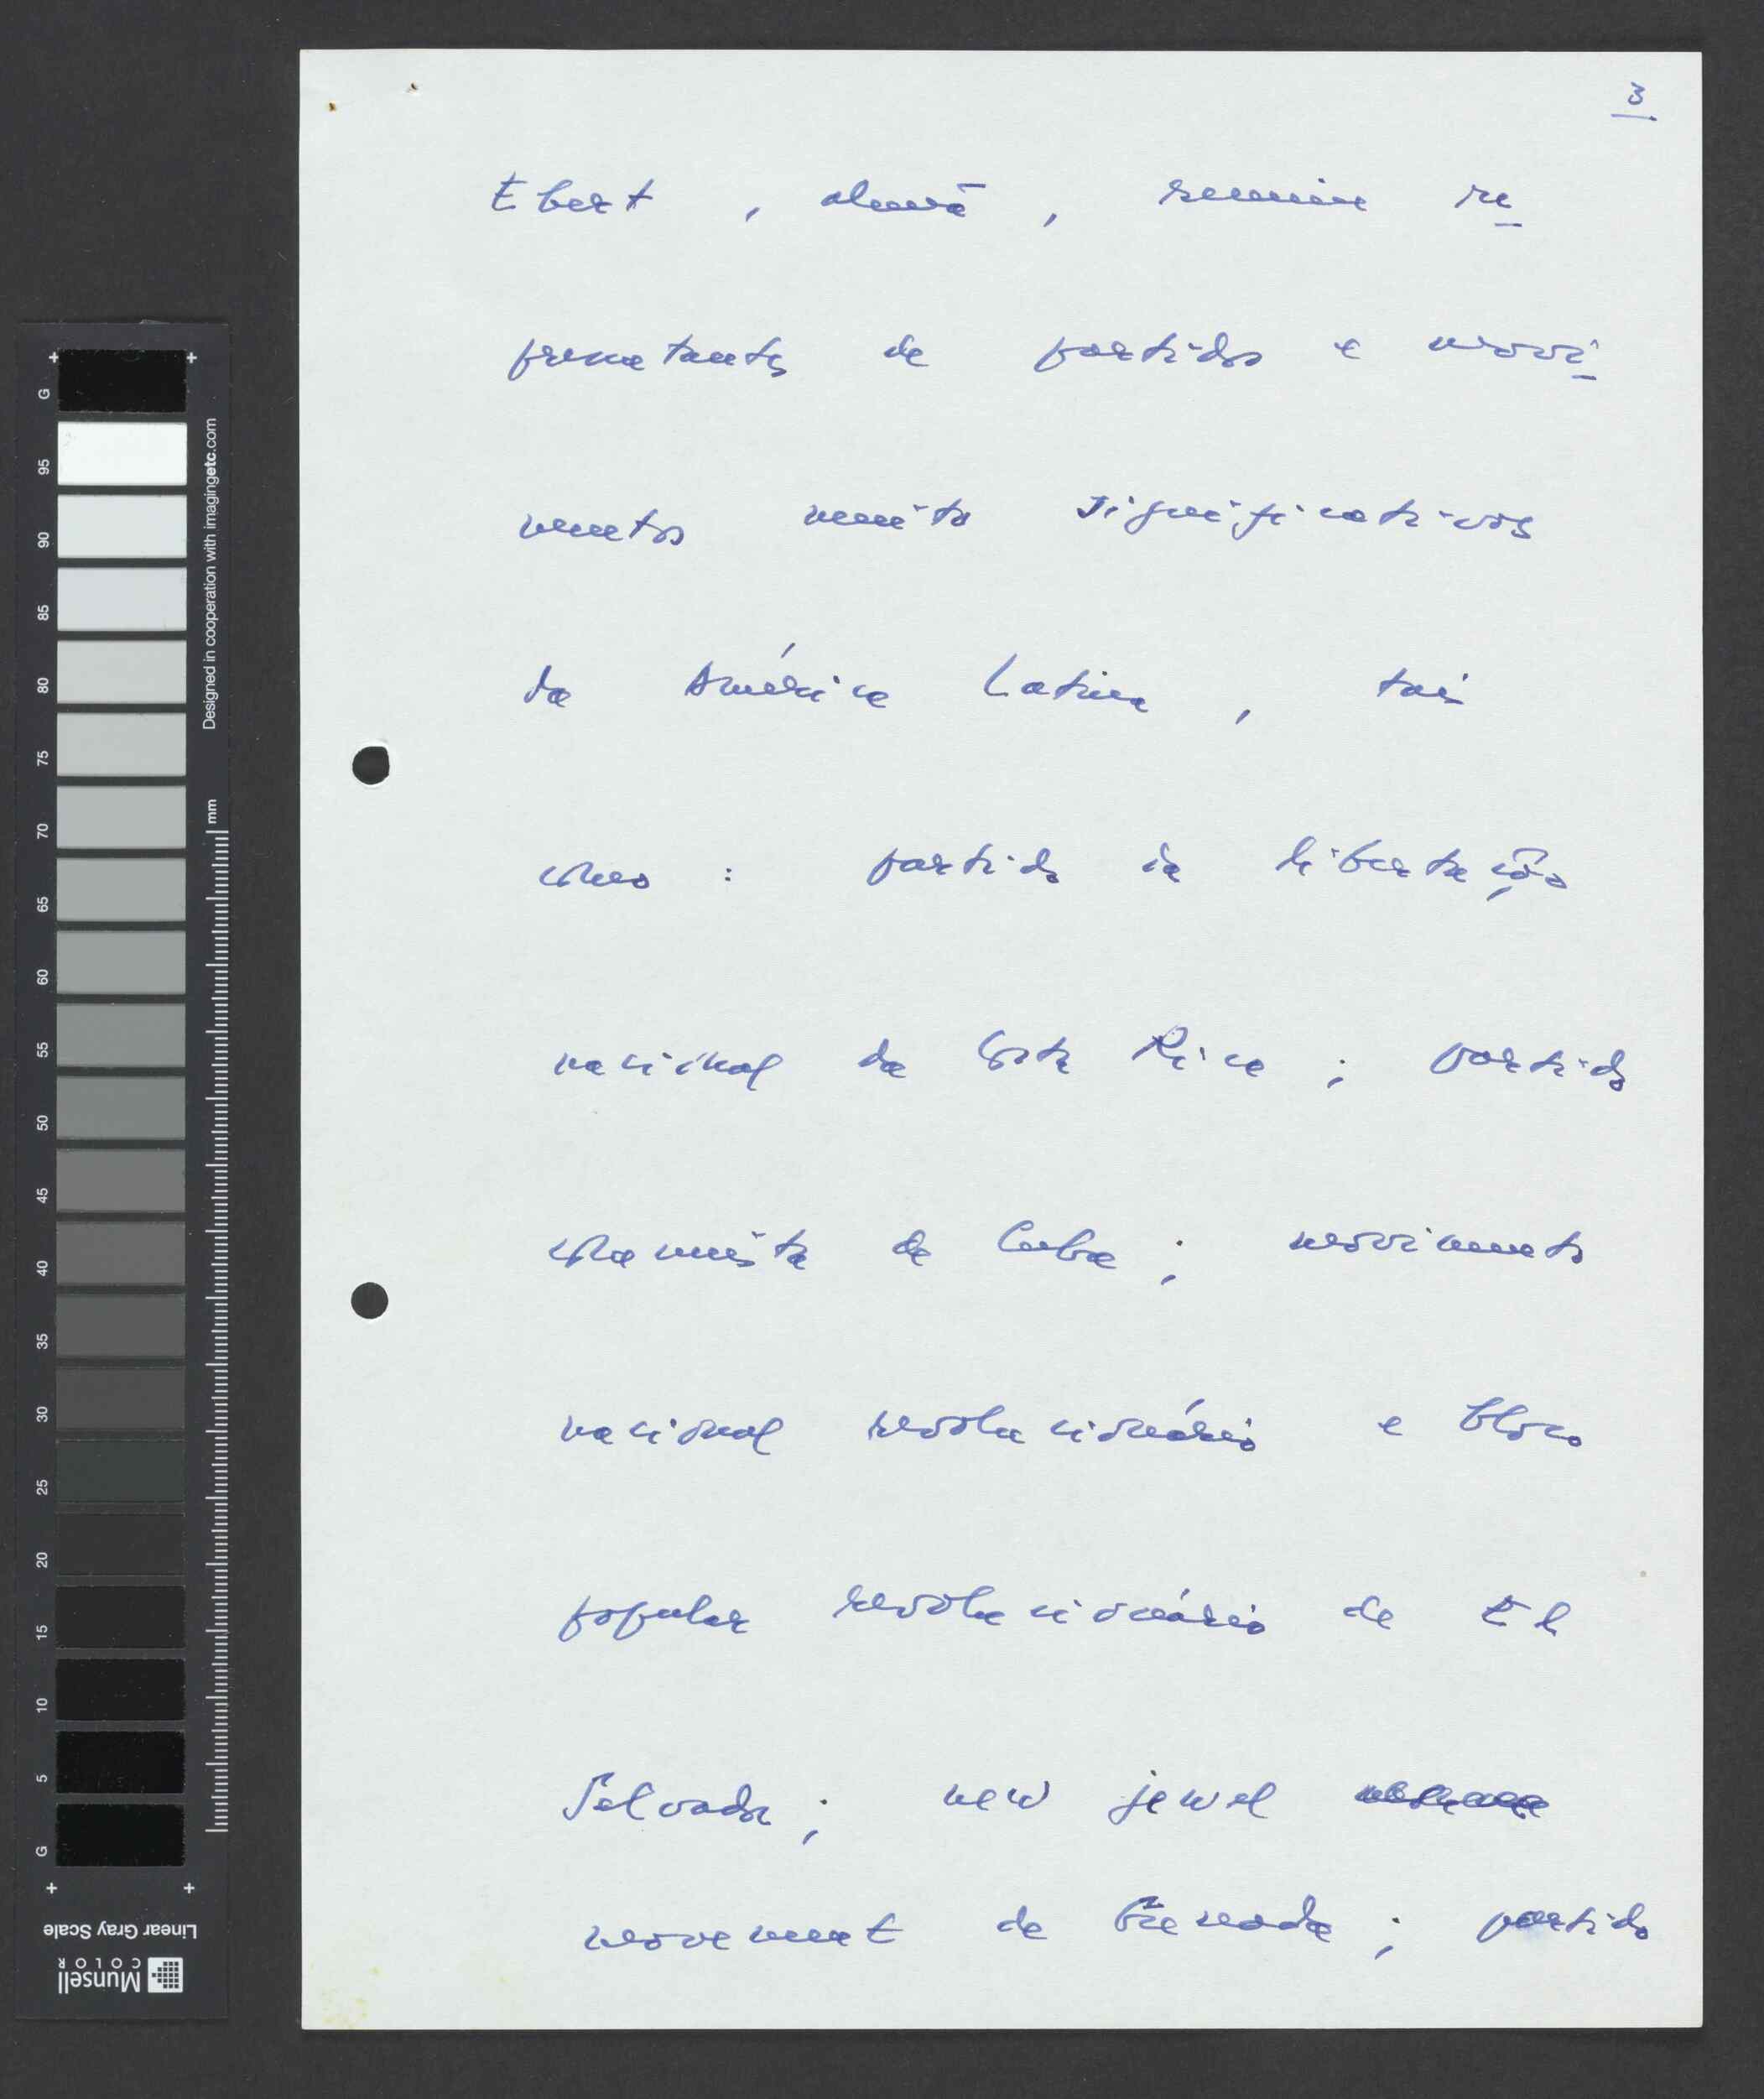 3
Ebert, alemã, reunia re
presentantes de partidos e movi
mentos muito significativos
da América Latina, tais
como: partido da libertação
nacional da Costa Rica; partido
comunista de Cuba; movimento
nacional revolucionário e bloco
popular revolucionário de El
Salvador; new jewel
movement de Grenada; partido
G 95 90 85 80 75 70 65 60 55 50 45 40 35 30 25 20 15 10 5 G
Designed in cooperation with imagingetc.com
mm
Linear Gray Scale
Munsell
COLOR